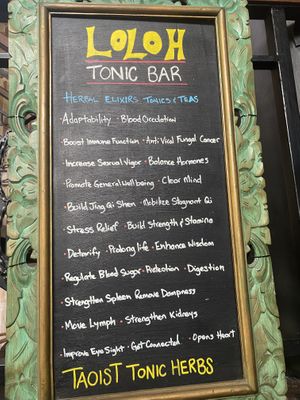 LOLOH
TONIC BAR
HERBAL ELIXIRS TONICS & TEAS
· Adaptability · Blood Circulation
· Boost Immune Function · Anti Viral Fungal Cancer
· Increase Sexual Vigor · Balance Hormones
· Promote General Wellbeing · Clear Mind
· Build Jing Qi Shen · Mobilize Stagnant Qi
· Stress Relief · Build Strength & Stamina
· Detoxify · Prolong life · Enhance Wisdom
· Regulate Blood Sugar · Protection · Digestion
· Strengthen Spleen Remove Dampness
· Move Lymph · Strengthen Kidneys
· Improve Eye Sight · Get Connected · Opens Heart
TAOIST TONIC HERBS